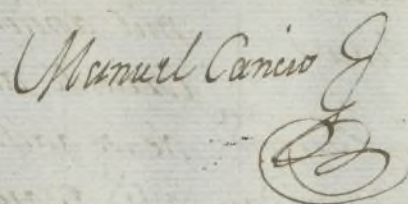 Manuel Cancio